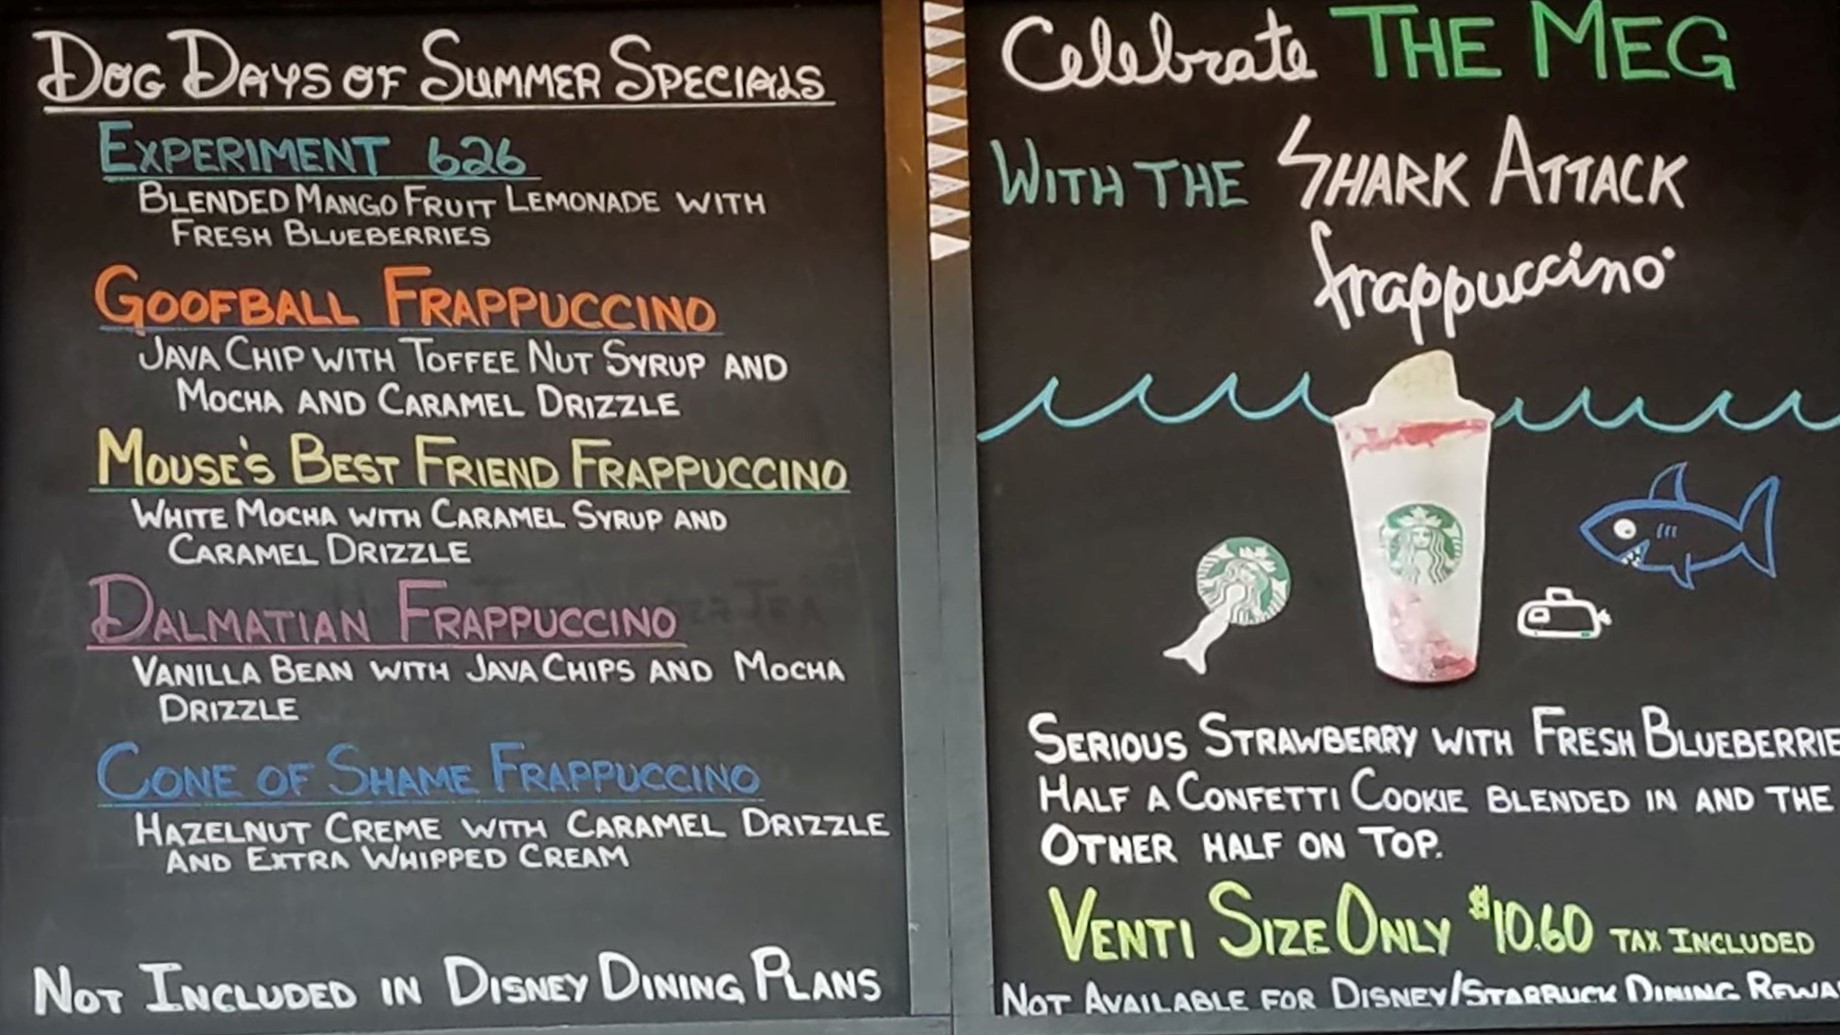 Dog Days of Summer Specials
Experiment 626
Blended Mango Fruit Lemonade with
Fresh Blueberries
Goofball Frappuccino
Java Chip with Toffee Nut Syrup and
Mocha and Caramel Drizzle
Mouse's Best Friend Frappuccino
White Mocha with Caramel Syrup and
Caramel Drizzle
Dalmatian Frappuccino
Vanilla Bean with Java Chips and Mocha
Drizzle
Cone of Shame Frappuccino
Hazelnut Creme with Caramel Drizzle
and Extra Whipped Cream
Not Included in Disney Dining Plans
Celebrate THE MEG
With the Shark Attack
frappuccino
Serious Strawberry with Fresh Blueberrie
Half a Confetti Cookie blended in and the
Other half on top.
Venti Size Only $10.60 tax included
Not Available for Disney/Starbuck Dining Rewa